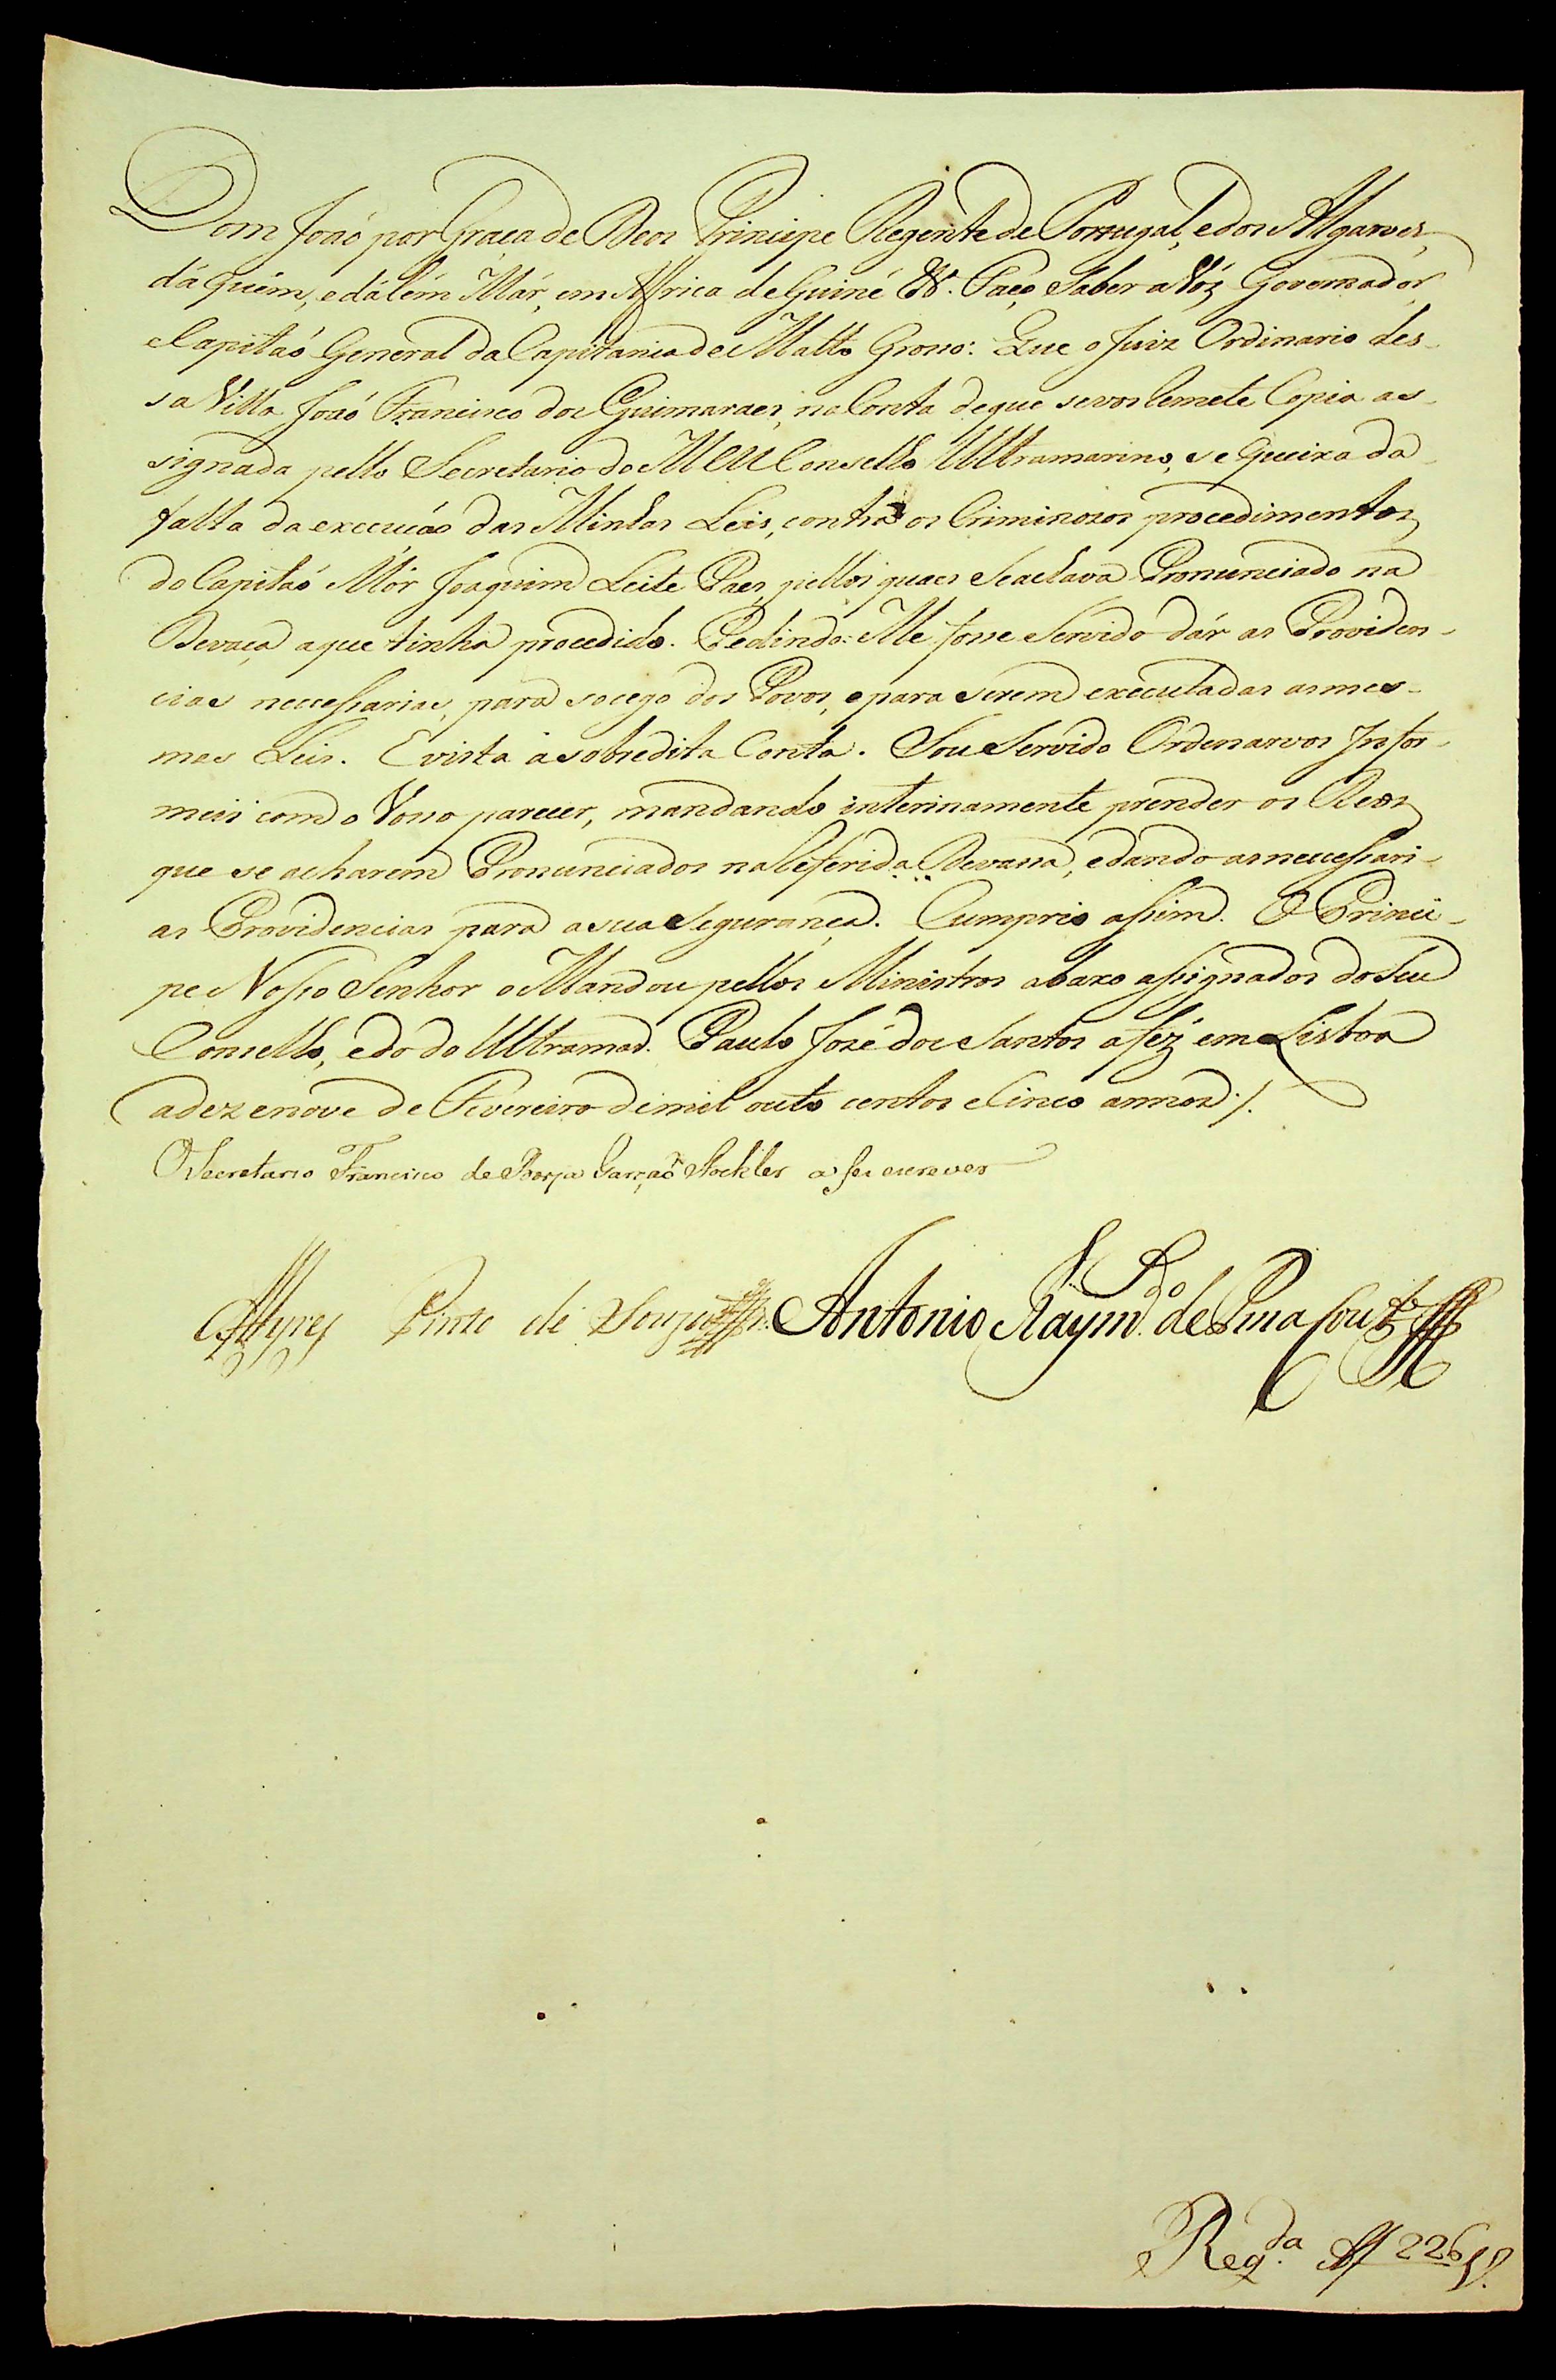 Dom João por Graça de Deos Principe Regente de Portugal, e dos Algarves,
dáquém, e dálém Már, em Affrica de Guiné &ª. Faço Saber a Vós Governador,
e Capitaõ General da Capitania de Matto Grosso: Que o Juiz Ordinario des-
sa Villa Joaõ Francisco dos Guimaraes, na Conta de que se vos Remete Copia as-
signada pello Secretario do MEU Conselho Ultramarino, se queixa da
falta da execucáo das Minhas Leis, contra os Criminosos procedimentos
do Capitaõ Mór Joaquim Leite Paes, pellos quaes Se achava Pronunciado na
Devaça a que tinha procedido. Pedindo: Me fosse Servido dár as Providen-
cias neccessarias, para socego dos Povos, e para Serem executadas as mes-
mas Leis. E vista a sobredita Conta. Sou Servido Ordenarvos Infor-
meis com o Vosso parecer, mandando interinamente prender os Reos
que se acharem Pronunciados na Referida Devassa, e dando as neccessari-
as Providencias para a sua Segurança. Cumprio assim. O Princi-
pe Nosso Senhor o Mandou pellos Ministros abaxo assignados do Seu
Conselho, e do do Ultramar. Paulo José dos Santos a féz em Lisboa
a dezenove de Fevereiro de mil outo centos e Cinco annos ./.
O Secretario Francisco de Borja Garçaõ Stockler a fei escrever
Ayres Pinto de Souza Antonio Raym.do de Pina Cout.º
Reg.da Af 226 V.